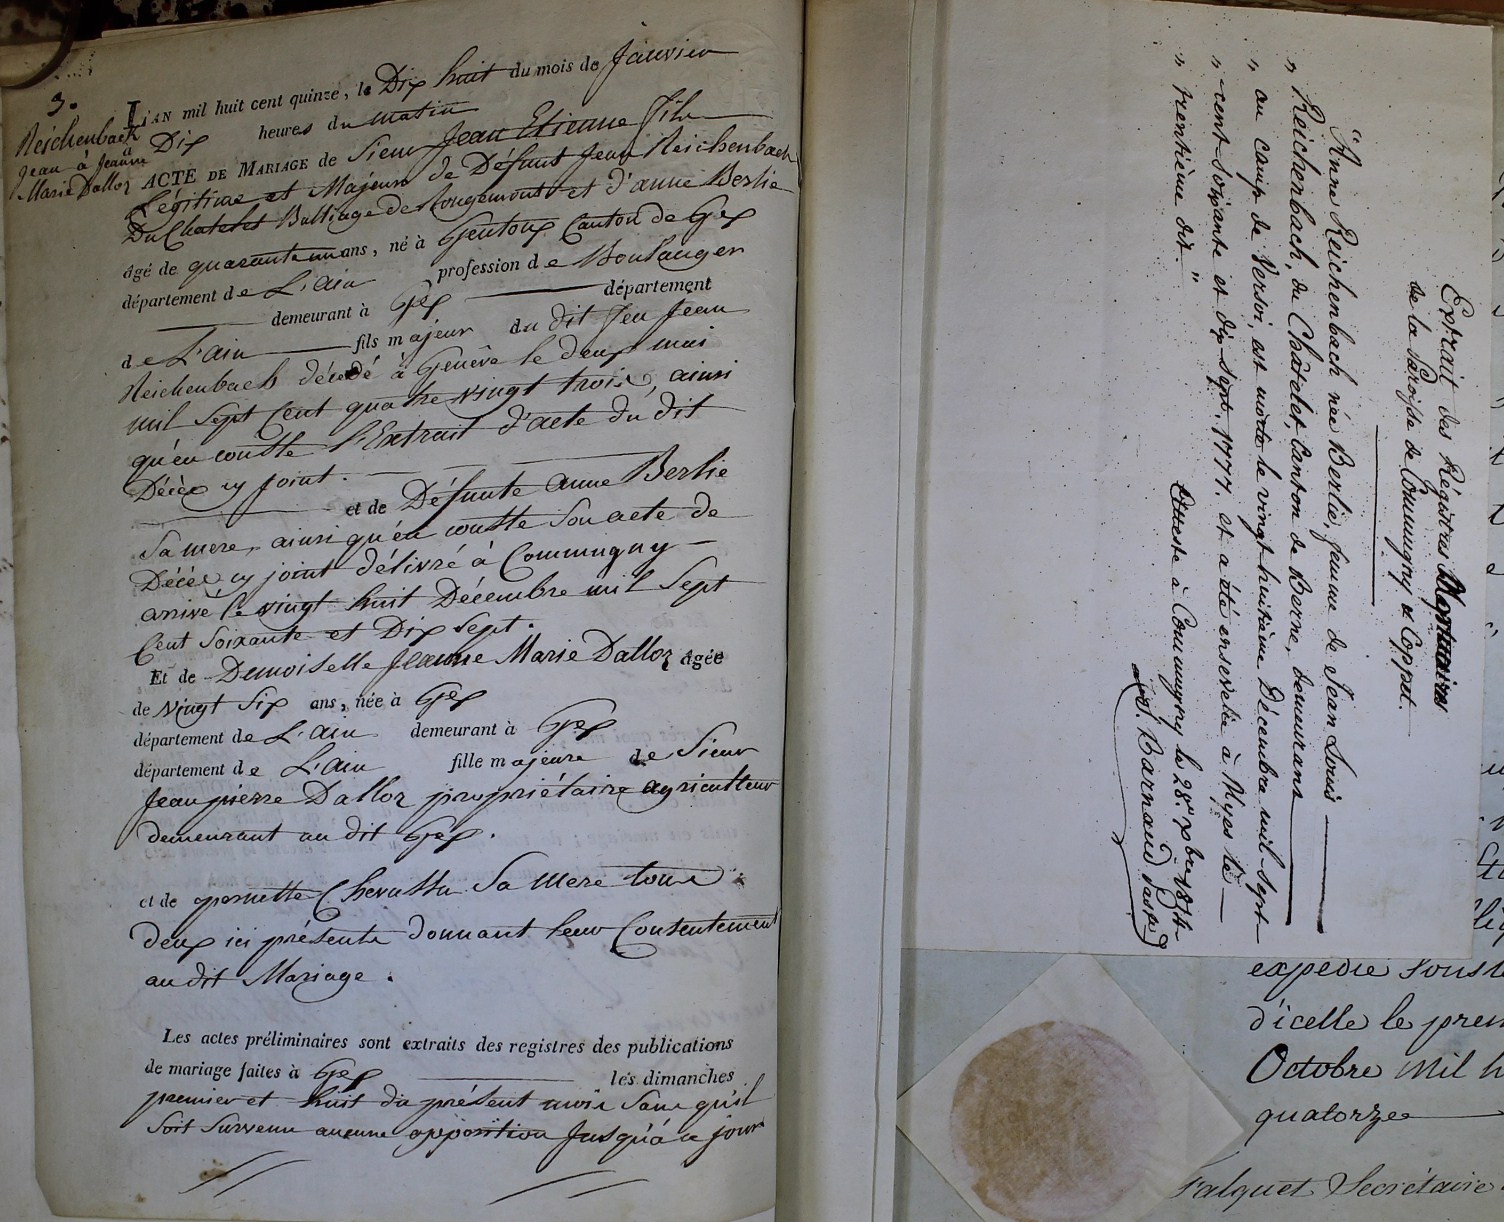 3.
Reichenback
Jean à Jeanne
Marie Dalloz
L'AN mil huit cent quinze, le Dix huit du mois de Janvier
Dix heures du matin
ACTE DE MARIAGE de Sieur Jean Etienne fils
Légitime et Majeur de Défunt Jean Reichenbach
Du Chatelet Balliage de Rougemont et d'anne Berlie
âgé de quarante un ans, né à Gentoux Canton de Gex
département de L'ain profession de Boulanger
demeurant à Gex département
de L'ain fils majeur du dit feu Jean
Reichenbach décedé à Genève le deux mai
mil sept Cent quatre vingt trois, ainsi
qu'en conste l'Extrait d'acte du dit
Décès cy joint.
et de Défunte anne Berlie
Sa mere, ainsi qu'en conste Son acte de
Décès cy joint délivré à Commugny
arrivé le vingt huit Décembre mil Sept
Cent Soixante et Dix sept.
Et de Demoiselle Jeanne Marie Dalloz âgée
de vingt Six ans, née à Gex
département de L'ain demeurant à Gex
département de L'ain fille majeure de Sieur
Jean pierre Dalloz propriétaire agriculteur
demeurant au dit Gex.
et de pernette Chevassu Sa Mere tous
deux ici présents donnant leur Consentement
au dit Mariage.
Les actes préliminaires sont extraits des registres des publications
de mariage faites à Gex les dimanches
premier et huit du présent mois Sans qu'il
Soit Survenu aucune opposition Jusqu'à ce jour
Extrait des Régistres Mortuaires
de la Paroisse de Commugny & Coppet.
"Anne Reichenbach née Berlie, femme de Jean Louis
" Reichenbach, du Châtelet, Canton de Berne, demeurans
" au camp de Versoi, est morte le vingt huitième Décembre mil-sept-
" cent-soixante et dix-sept. 1777. et a été ensevelie à Myes le
" trentième dit."
Atteste à Commugny le 28e. xbre 1814.
L. Barnaud past.
expédié sous
d'icelle le prem
Octobre Mil h
quatorze
Falquet Secrétaire